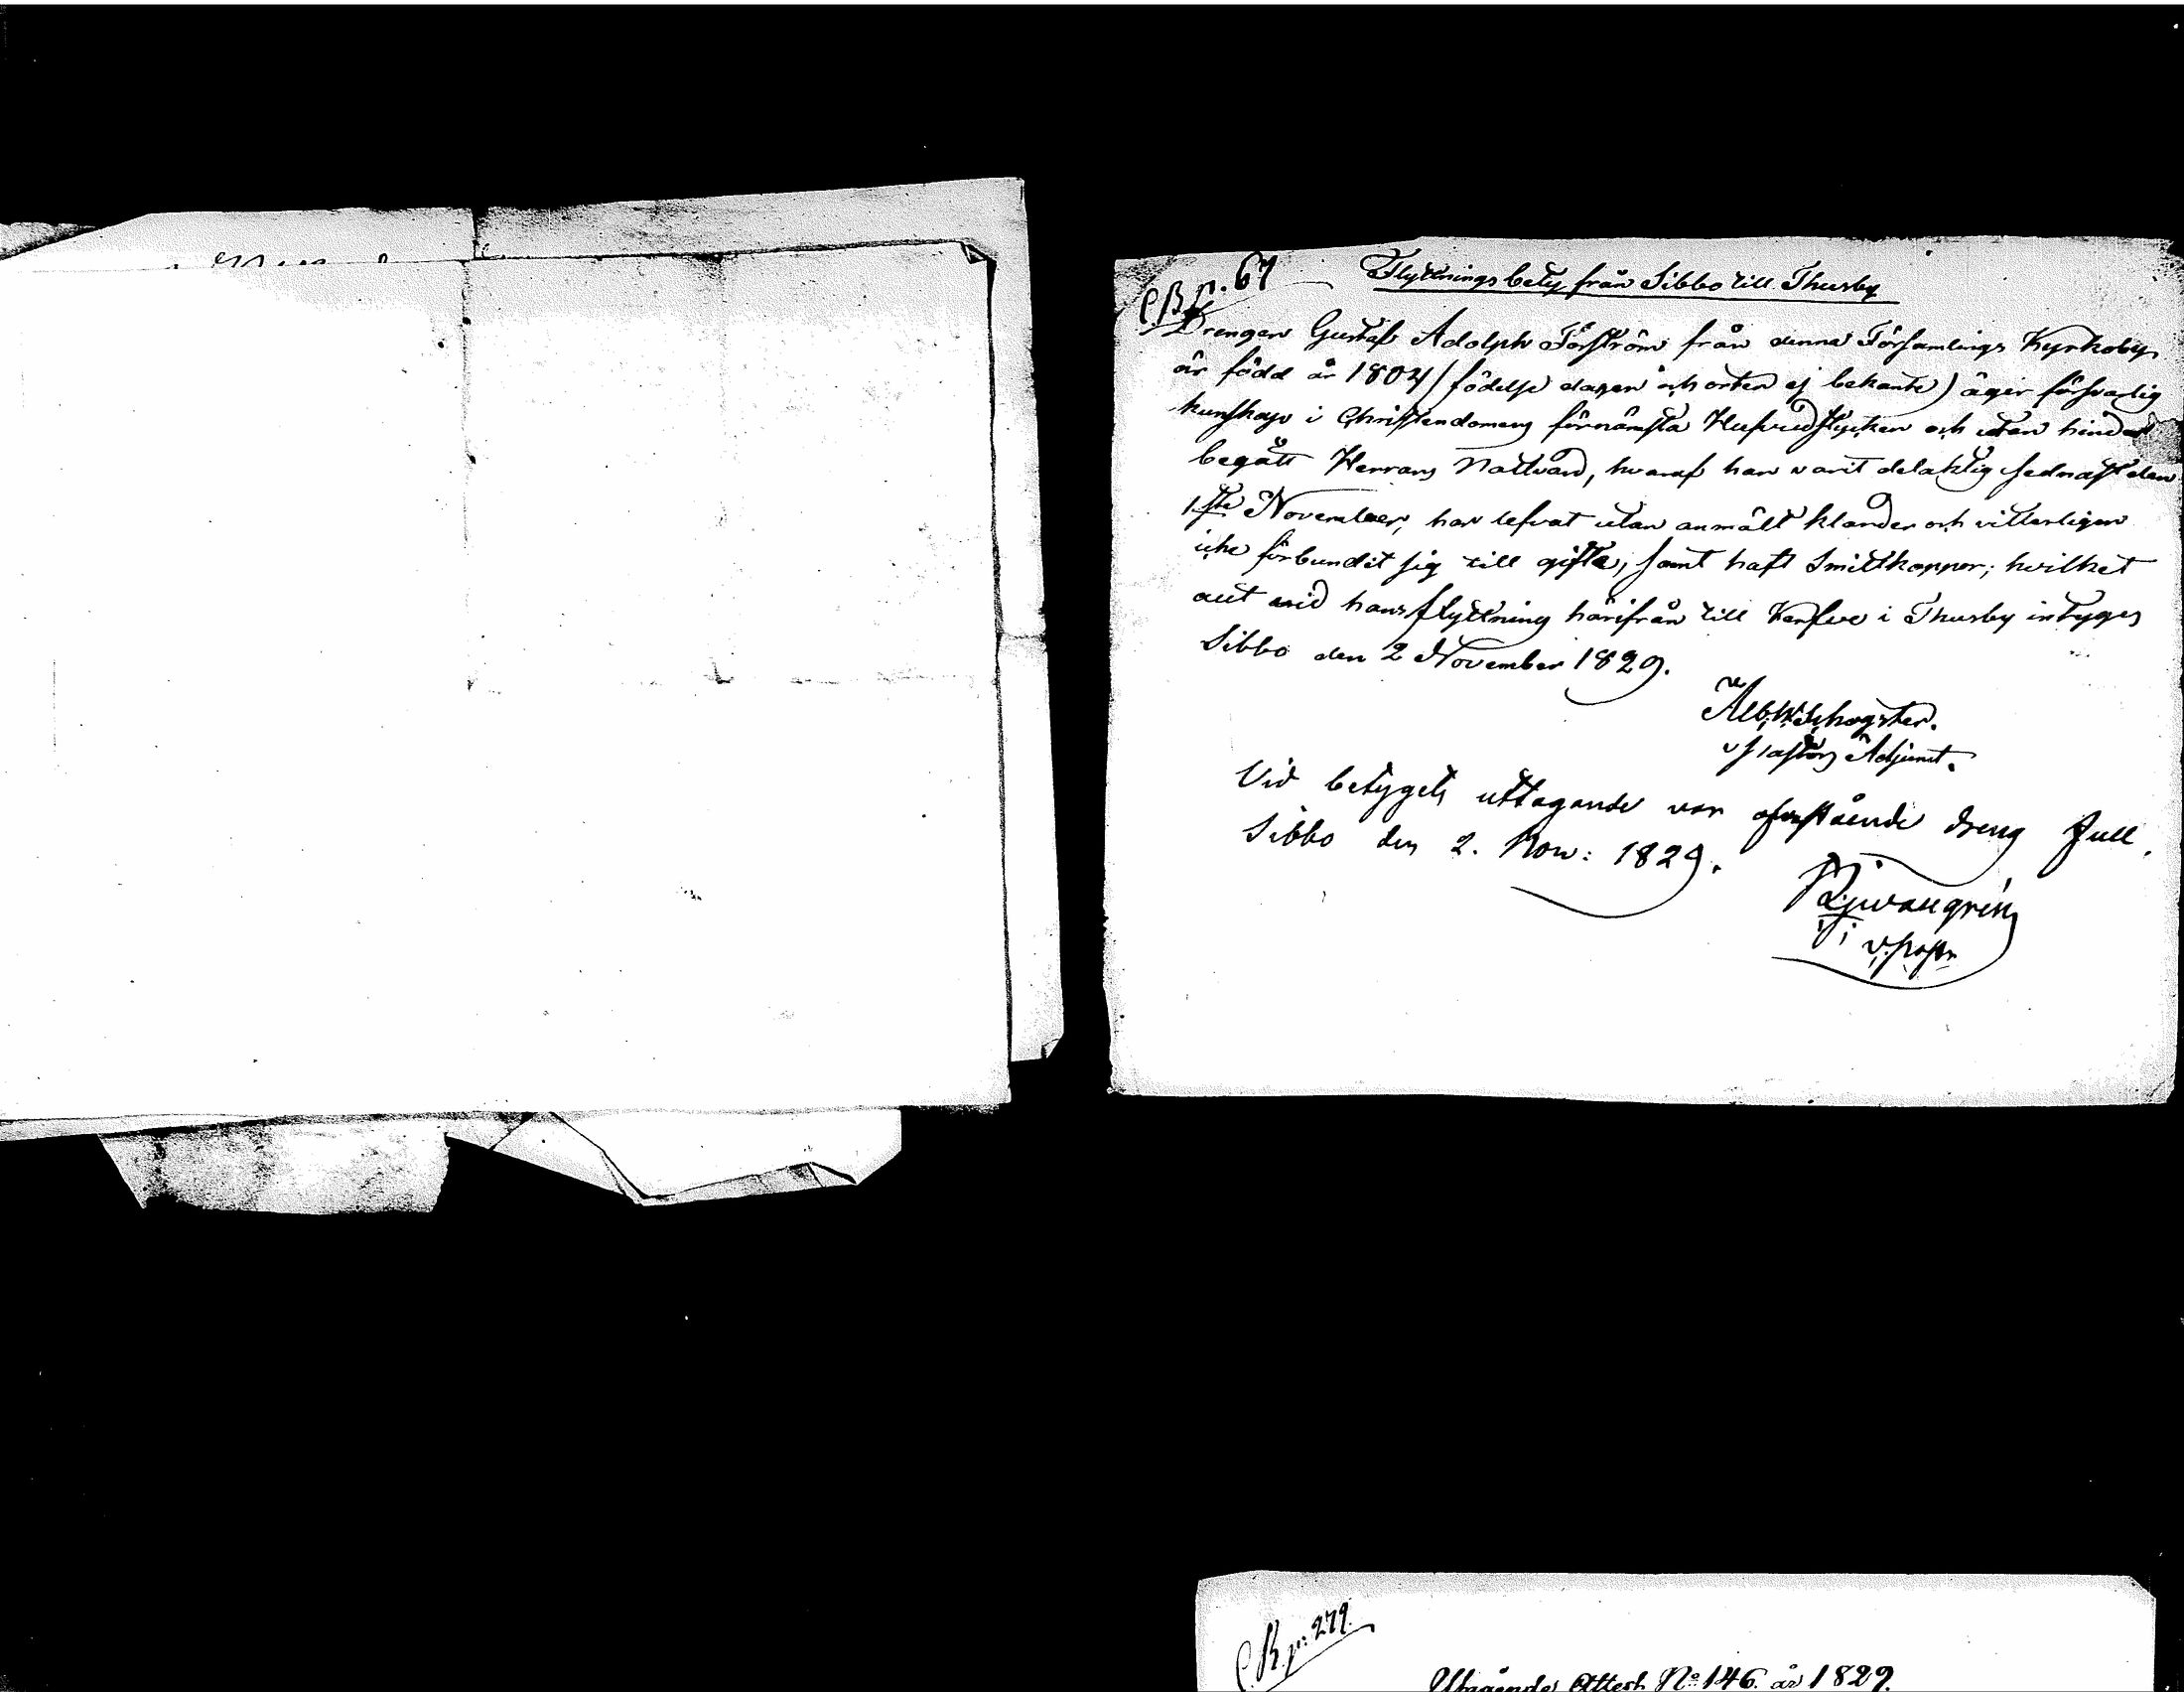 C.B. p. 67
Flyttnings bety från Sibbo till Thusby
Drengen Gustaf Adolph Törström från denna Församlings Kyrkoby
är född år 1804 (födelse dagen och orten ej bekante) äger försvarlig
kunskap i Christendomens förnämsta Hufvudstycken och utan hinder
begått Herrans Nattvard, hvaraf han varit delaktig sednast den
1ste November, har lefvat utan anmält klander och vitterligen
icke förbundit sig till gifte, samt haft Smittkoppor; hvilket
allt vid hans flyttning härifrån till Kerfve i Thusby intyges
Sibbo den 2 November 1829.
Pastors Adjunct.
Vid betygets uttagande var ofvanstående dreng full.
Sibbo den 2. Nov: 1829.
v. past.
C.B. p: 279.
Utgående Attest No 146. år 1829.